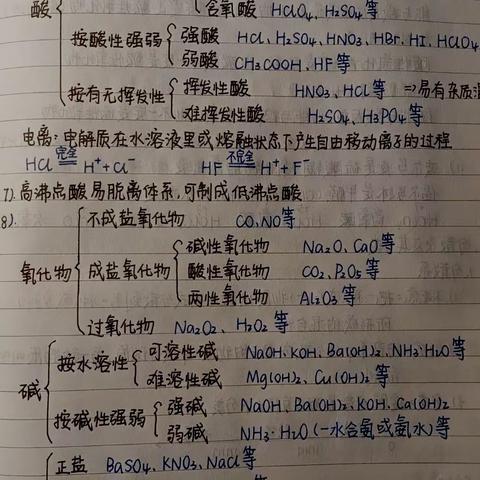 酸 含氧酸 HClO₄、H₂SO₄等
按酸性强弱 强酸 HCl、H₂SO₄、HNO₃、HBr、HI、HClO₄
弱酸 CH₃COOH、HF等
按有无挥发性 挥发性酸 HNO₃、HCl等 ⇒易有杂质
难挥发性酸 H₂SO₄、H₃PO₄等
电离:电解质在水溶液里或熔融状态下产生自由移动离子的过程
HCl 完全 H⁺+Cl⁻ HF 不完全 H⁺+F⁻
7).高沸点酸易脱离体系,可制成低沸点酸
8).
不成盐氧化物 CO、NO等
碱性氧化物 Na₂O、CaO等
氧化物 成盐氧化物 酸性氧化物 CO₂、P₂O₅等
两性氧化物 Al₂O₃等
过氧化物 Na₂O₂、H₂O₂等
按水溶性 可溶性碱 NaOH、KOH、Ba(OH)₂、NH₃·H₂O等
难溶性碱 Mg(OH)₂、Cu(OH)₂等
碱
按碱性强弱 强碱 NaOH、Ba(OH)₂、KOH、Ca(OH)₂
弱碱 NH₃·H₂O(一水合氨或氨水)等
正盐 BaSO₄、KNO₃、NaCl等